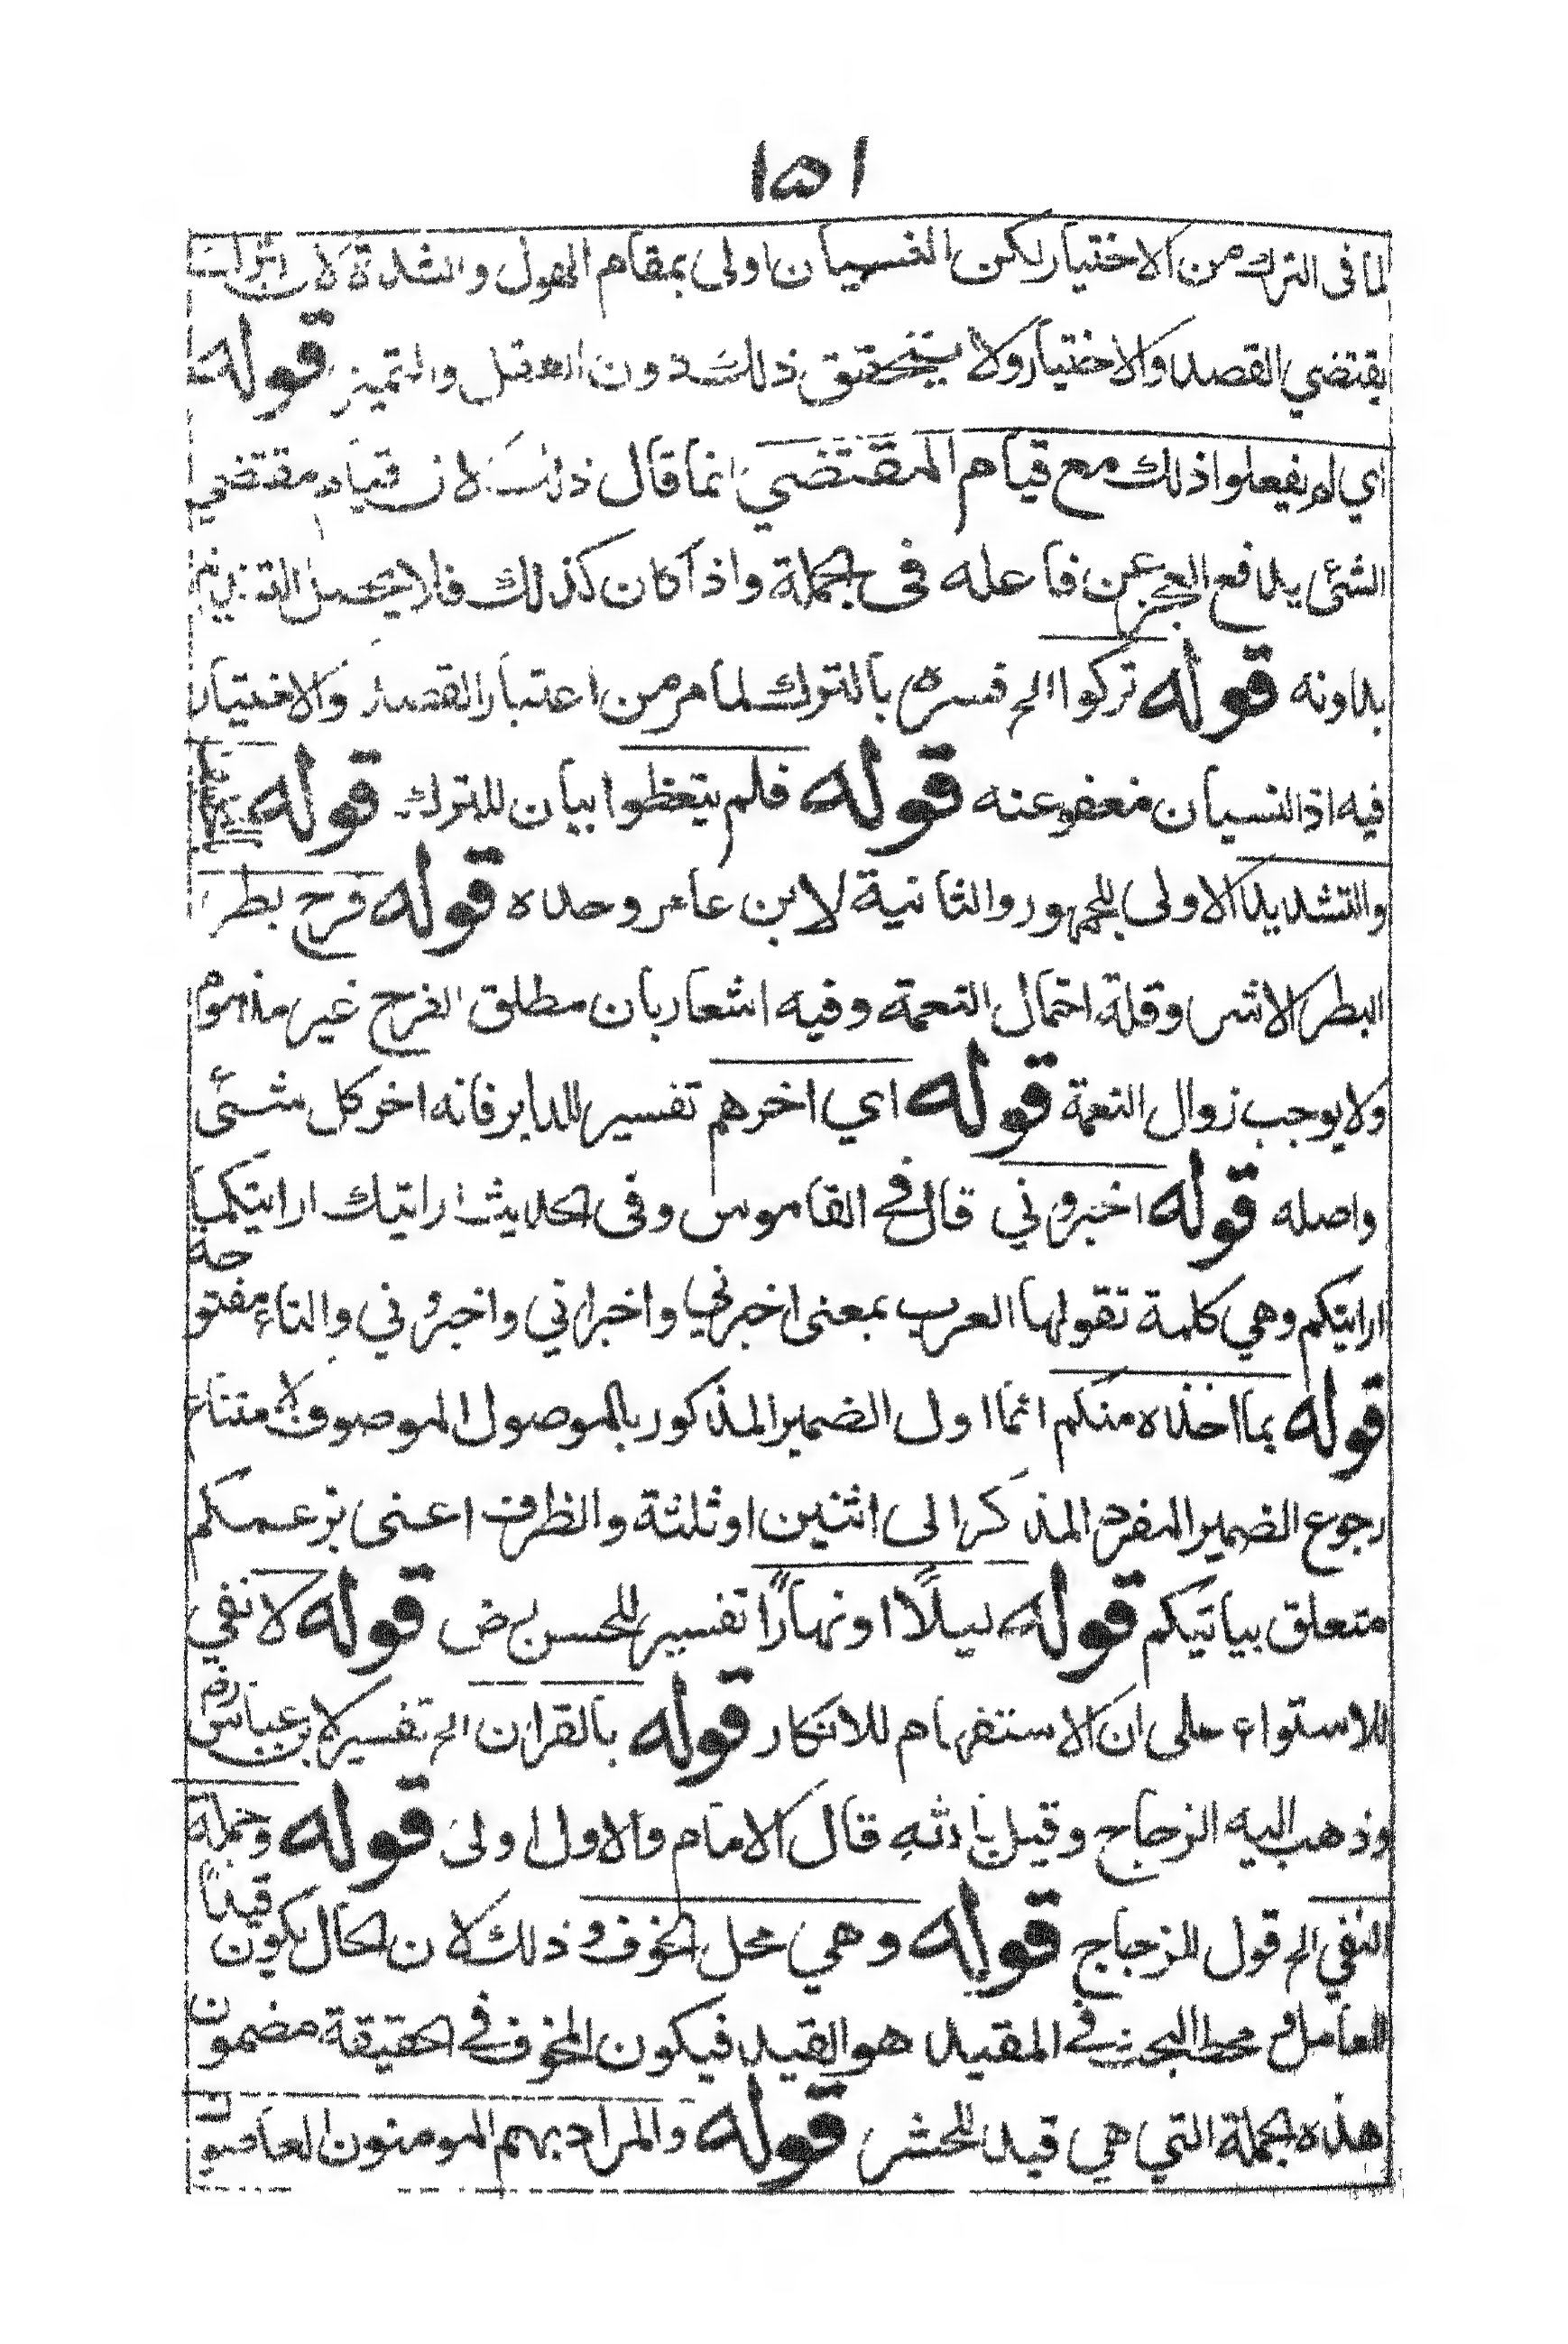 ١٥١
لما فى الترك من الاختيار لكن النسيان اولى بمقام الهول والشدة لان الترك
يقتضي القصد والاختيار ولا يتحقق ذلك دون العقل والتميز قوله
اي لم يفعلوا ذلك مع قيام المقتضي انما قال ذلك لان قيام مقتضي
الشئ يدافع العجز عن فاعله فى الجملة واذا كان كذلك فلا يحصل
بدونه قوله تركوا الخ فسره بالترك لما مر من اعتبار القصد والاختيار
فيه اذ النسيان معفو عنه قوله فلم يتعظوا بيان للترك قوله
والتشديد الاولى للجمهور والثانية لابن عامر وحده قوله فرح بطر
البطر الاشر وقلة احتمال النعمة وفيه اشعار بان مطلق الفرح غير مذموم
ولا يوجب زوال النعمة قوله اي اخرهم تفسير للدابر فانه اخر كل شئى
واصله قوله اخبروني قال فى القاموس وفى الحديث ارايتك ارايتكما
ارايتكم وهي كلمة تقولها العرب بمعنى اخبرني واخبراني واخبروني والتاء مفتوحة
قوله بما اخذه منكم انما اول الضمير المذكور بالموصول الموصوف لامتناع
رجوع الضمير المفرد المذكر الى اثنين او ثلثة والظرف اعنى بزعمكم
متعلق بياتيكم قوله ليلًا او نهارًا تفسير للحسن رض قوله لا نفي
للاستواء على ان الاستفهام للانكار قوله بالقران الخ تفسير لابن عباس رض
وذهب اليه الزجاج وقيل بادثه قال الامام والاول اولى قوله وجملة
النفي الخ قول للزجاج قوله وهي محل الخوف وذلك لان الحال يكون قيدًا
للعامل و محط البحث فى المقيد هو القيد فيكون المخوف فى الحقيقة مضمون
هذه الجملة التي هي قيد للحشر قوله والمراد بهم المومنون العاصون